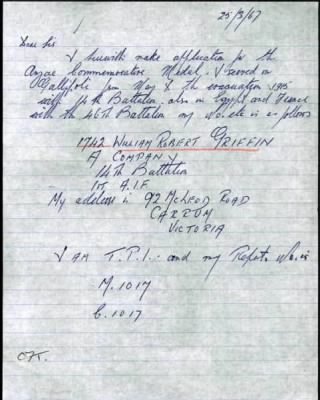 25/3/67
Dear Sir
I herewith make application for the
Anzac Commemorative Medal. I served on
Gallipoli from May to the evacuation 1915
with 14th Battalion also in Egypt and France
with the 46th Battalion my No. etc is as follows
1742 WILLIAM ROBERT GRIFFIN
A COMPANY
14th Battalion
1ST A.I.F
My address is 92 McLEOD ROAD
CARRUM
VICTORIA
I AM T.P.I. and my Repat. No. is
M.1017
C.1017
OK.